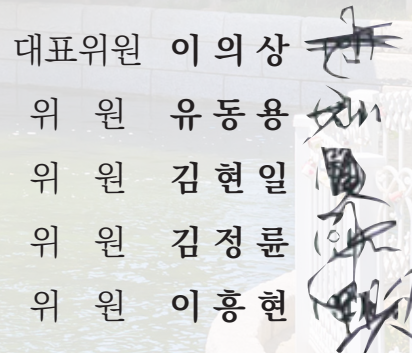 대표위원 이 의 상
위 원 유 동 용
위 원 김 현 일
위 원 김 정 륜
위 원 이 흥 현